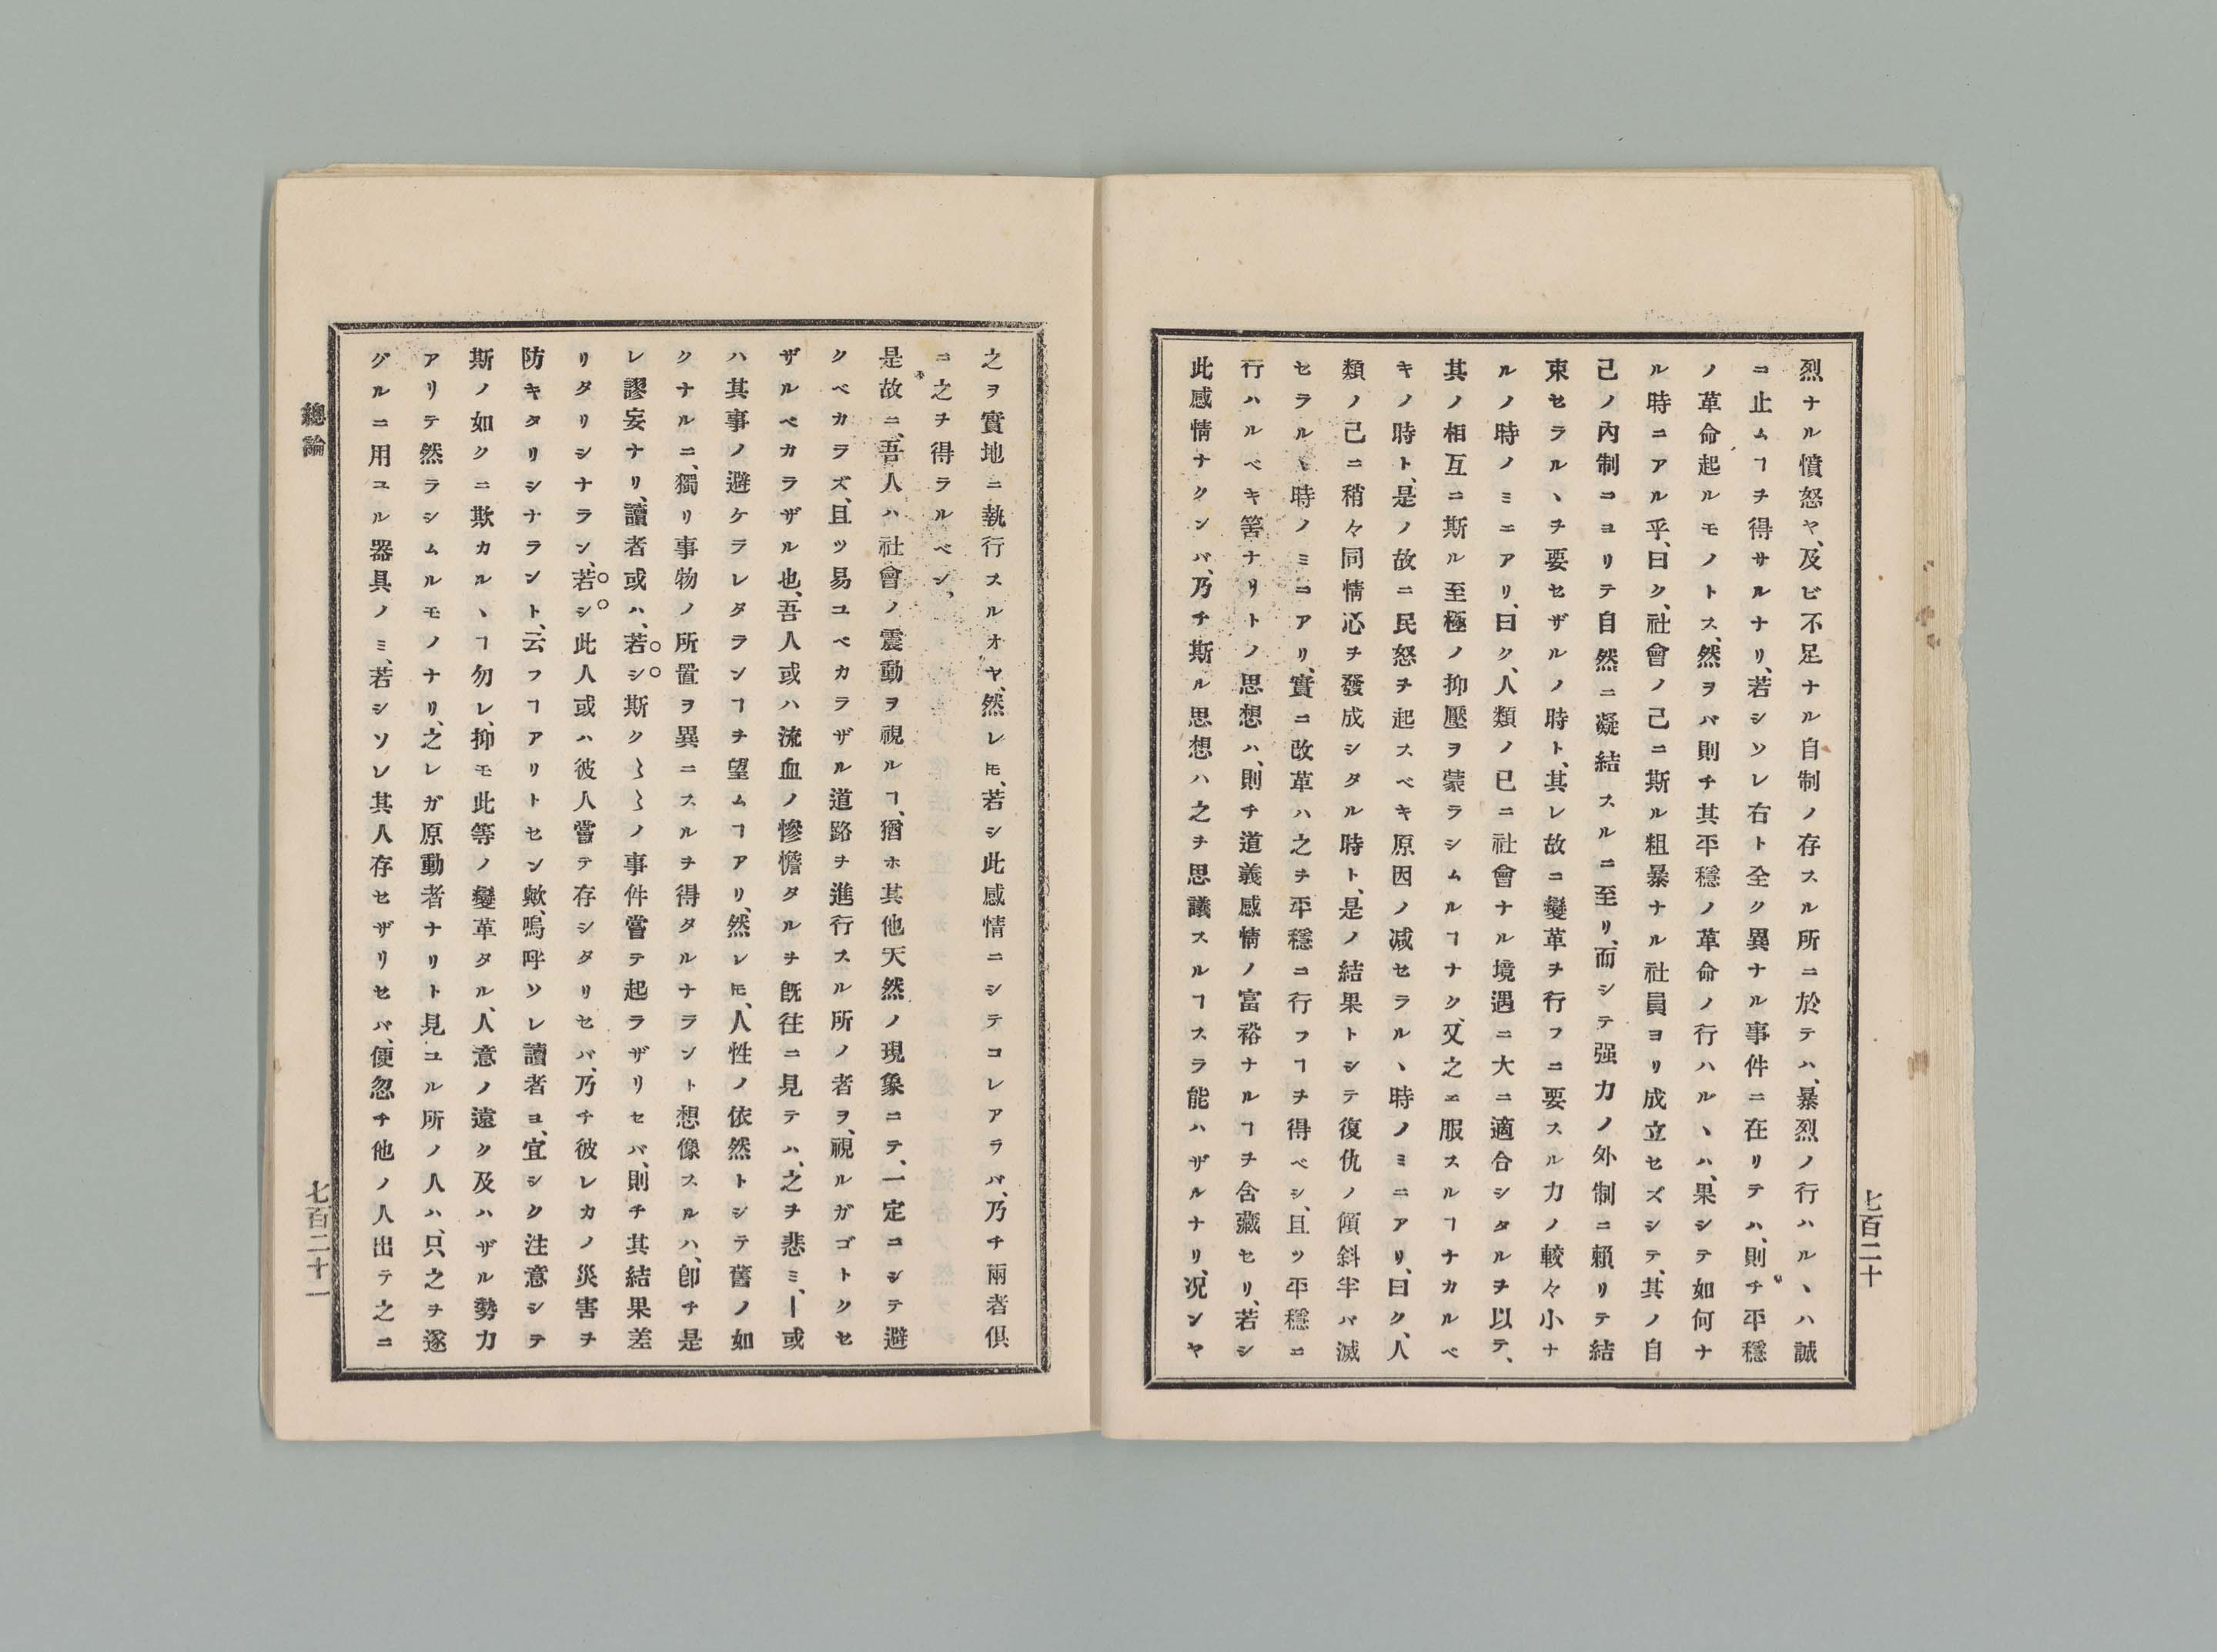 烈ナル憤怒ヤ、及ビ不足ナル自制ノ存スル所ニ於テハ、暴烈ノ行ハルヽハ誠
ニ止ムヿヲ得サルナリ、若シソレ右ト全ク異ナル事件ニ在リテハ、則チ平穩
ノ革命起ルモノトス、然ヲバ則チ其平穩ノ革命ノ行ハルヽハ、果シテ如何ナ
ル時ニアル乎、曰ク、社會ノ己ニ斯ル粗暴ナル社員ヨリ成立セズシテ、其ノ自
己ノ內制ニヨリテ自然ニ凝結スルニ至リ、而シテ强力ノ外制ニ賴リテ結
束セラルヽヲ要セザルノ時ト、其レ故ニ變革ヲ行フニ要スル力ノ較々小ナ
ルノ時ノミニアリ、曰ク、人類ノ已ニ社會ナル境遇ニ大ニ適合シタルヲ以テ、
其ノ相互ニ斯ル至極ノ抑壓ヲ蒙ラシムルヿナク、又之ニ服スルヿナカルベ
キノ時ト、是ノ故ニ民怒ヲ起スベキ原因ノ减セラルヽ時ノミニアリ、曰ク、人
類ノ己ニ稍々同情心ヲ發成シタル時ト、是ノ結果トシテ復仇ノ傾斜半バ滅
セラルヽ時ノミニアリ、實ニ改革ハ之ヲ平穩ニ行フヿヲ得ベシ、且ツ平穩ニ
行ハルベキ筈ナリトノ思想ハ、則チ道義感情ノ富裕ナルヿヲ含藏セリ、若シ
此感情ナクンバ、乃チ斯ル思想ハ之ヲ思議スルヿスラ能ハザルナリ、况ンヤ
七百二十
之ヲ實地ニ執行スルオヤ、然レ𪜈、若シ此感情ニシテコレアラバ、乃チ兩者俱
ニ之ヲ得ラルベシ、
是故ニ、吾人ハ社會ノ震動ヲ視ルヿ、猶ホ其他天然ノ現象ニテ、一定ニシテ避
クベカラズ、且ツ易ユベカラザル道路ヲ進行スル所ノ者ヲ、視ルガゴトクセ
ザルベカラザル也、吾人或ハ流血ノ慘憺タルヲ旣往ニ見テハ、之ヲ悲ミ、ー或
ハ其事ノ避ケラレタランヿヲ望ムヿアリ、然レ𪜈、人性ノ依然トシテ舊ノ如
クナルニ、獨リ事物ノ所置ヲ異ニスルヲ得タルナラント想像スルハ、卽チ是
レ謬妄ナリ、讀者或ハ、若シ斯ク〱〱ノ事件嘗テ起ラザリセバ、則チ其結果差
リタリシナラン、若シ此人或ハ彼人嘗テ存シタリセバ、乃チ彼レカノ災害ヲ
防キタリシナラント、云フヿアリトセン歟、嗚呼ソレ讀者ヨ、宜シク注意シテ
斯ノ如クニ欺カルヽヿ勿レ、抑モ此等ノ變革タル、人意ノ遠ク及ハザル勢力
アリテ然ラシムルモノナリ、之レガ原動者ナリト見ユル所ノ人ハ、只之ヲ遂
グルニ用ユル器具ノミ、若シソレ其人存セザリセバ、便忽チ他ノ人出テ之ニ
總論
七百二十一